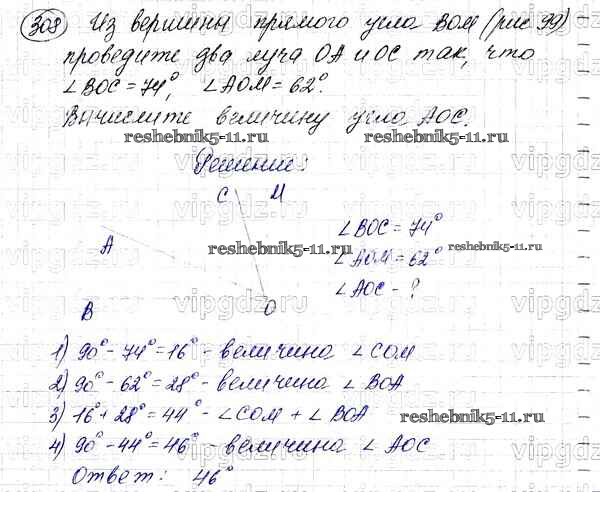 308 Из вершины прямого угла BOM (рис 99)
проведите два луча OA и OC так, что
∠BOC = 74°, ∠AOM = 62°.
Вычислите величину угла AOC.
reshebnik5-11.ru reshebnik5-11.ru
Решение:
C M
∠BOC = 74°
A reshebnik5-11.ru ∠AOM = 62° reshebnik5-11.ru
∠AOC - ?
B O
1) 90° - 74° = 16° - величина ∠COM
2) 90° - 62° = 28° - величина ∠BOA
3) 16° + 28° = 44° - ∠COM + ∠BOA reshebnik5-11.ru
4) 90° - 44° = 46° - величина ∠AOC
Ответ: 46°